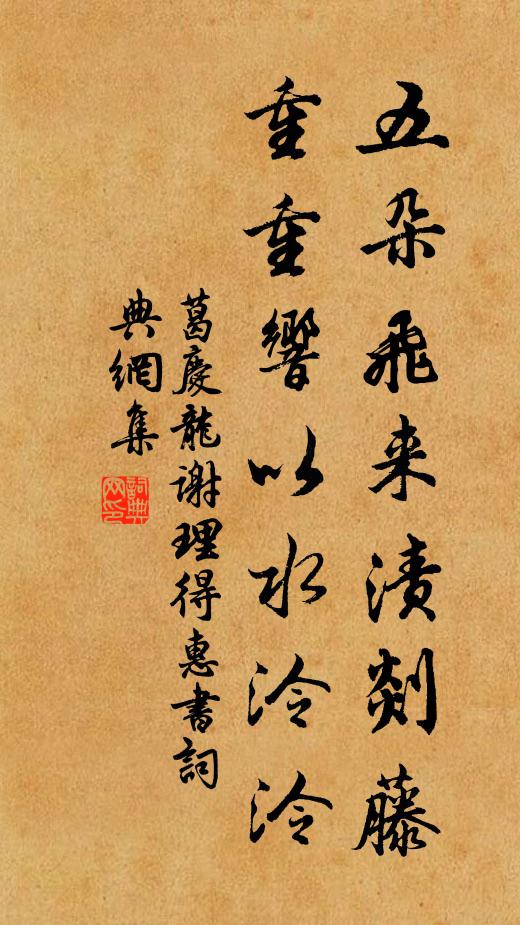 五朵飛来漬剡藤
重重響以水泠泠
葛慶龍謝理得惠書詞
典網集
詞典網印